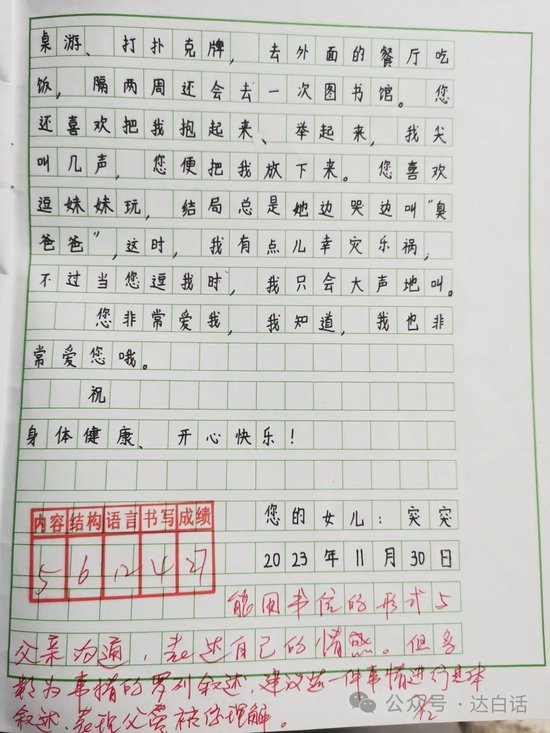 桌游、打扑克牌，去外面的餐厅吃
饭，隔两周还会去一次图书馆。您
还喜欢把我抱起来、举起来，我尖
叫几声，您便把我放下来。您喜欢
逗妹妹玩，结局总是她边哭边叫“臭
爸爸”，这时，我有点儿幸灾乐祸，
不过当您逗我时，我只会大声地叫。
您非常爱我，我知道，我也非
常爱您哦。
祝
身体健康、开心快乐！
您的女儿：突突
2023年11月30日
内容 结构 语言 书写 成绩
5 6 12 4 27
能用书信的形式与
父亲沟通，表述自己的情感。但多
数为事情的罗列叙述，建议选一件事情进行具体
叙述，表现父爱
公众号·达白话